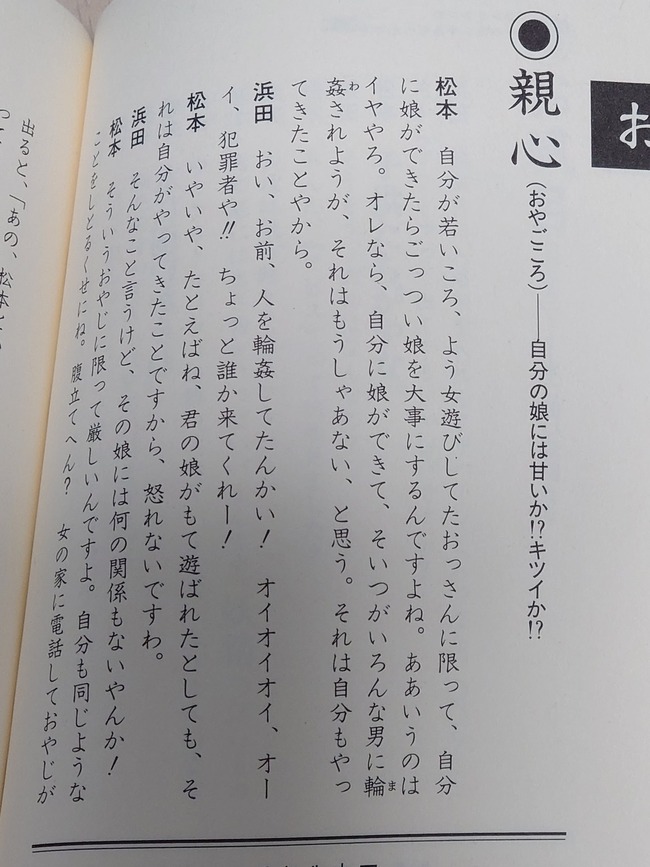 お
親心(おやごころ)──自分の娘には甘いか!?キツイか!?
松本　自分が若いころ、よう女遊びしてたおっさんに限って、自分
に娘ができたらごっつい娘を大事にするんですよね。ああいうのは
イヤやろ。オレなら、自分に娘ができて、そいつがいろんな男に輪
姦されようが、それはもうしゃあない、と思う。それは自分もやっ
てきたことやから。
浜田　おい、お前、人を輪姦してたんかい！　オイオイオイ、オー
イ、犯罪者や!!　ちょっと誰か来てくれー！
松本　いやいや、たとえばね、君の娘がもて遊ばれたとしても、そ
れは自分がやってきたことですから、怒れないですわ。
浜田　そんなこと言うけど、その娘には何の関係もないやんか！
松本　そういうおやじに限って厳しいんですよ。自分も同じような
ことをしとるくせにね。腹立てへん？　女の家に電話しておやじが
出ると、「あの、松本と